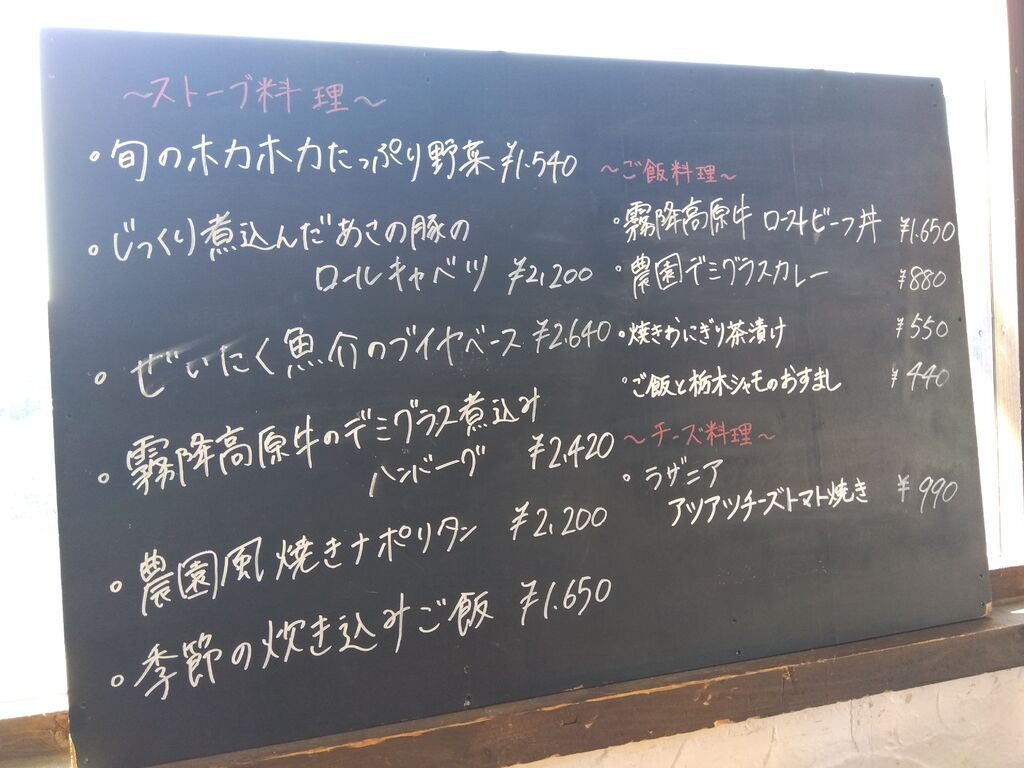 ～ストーブ料理～
・旬のホカホカたっぷり野菜 ¥1.540
・じっくり煮込んだあさの豚の
ロールキャベツ ¥2,200
・ぜいたく魚介のブイヤベース ¥2.640
・霧降高原牛のデミグラス煮込み
ハンバーグ ¥2,420
・農園風焼きナポリタン ¥2,200
・季節の炊き込みご飯 ¥1.650
～ご飯料理～
・霧降高原牛 ローストビーフ丼 ¥1.650
・農園デミグラスカレー ¥880
・焼きおにぎり茶漬け ¥550
・ご飯と栃木シャモのおすまし ¥440
～チーズ料理～
・ラザニア
アツアツチーズトマト焼き ¥990